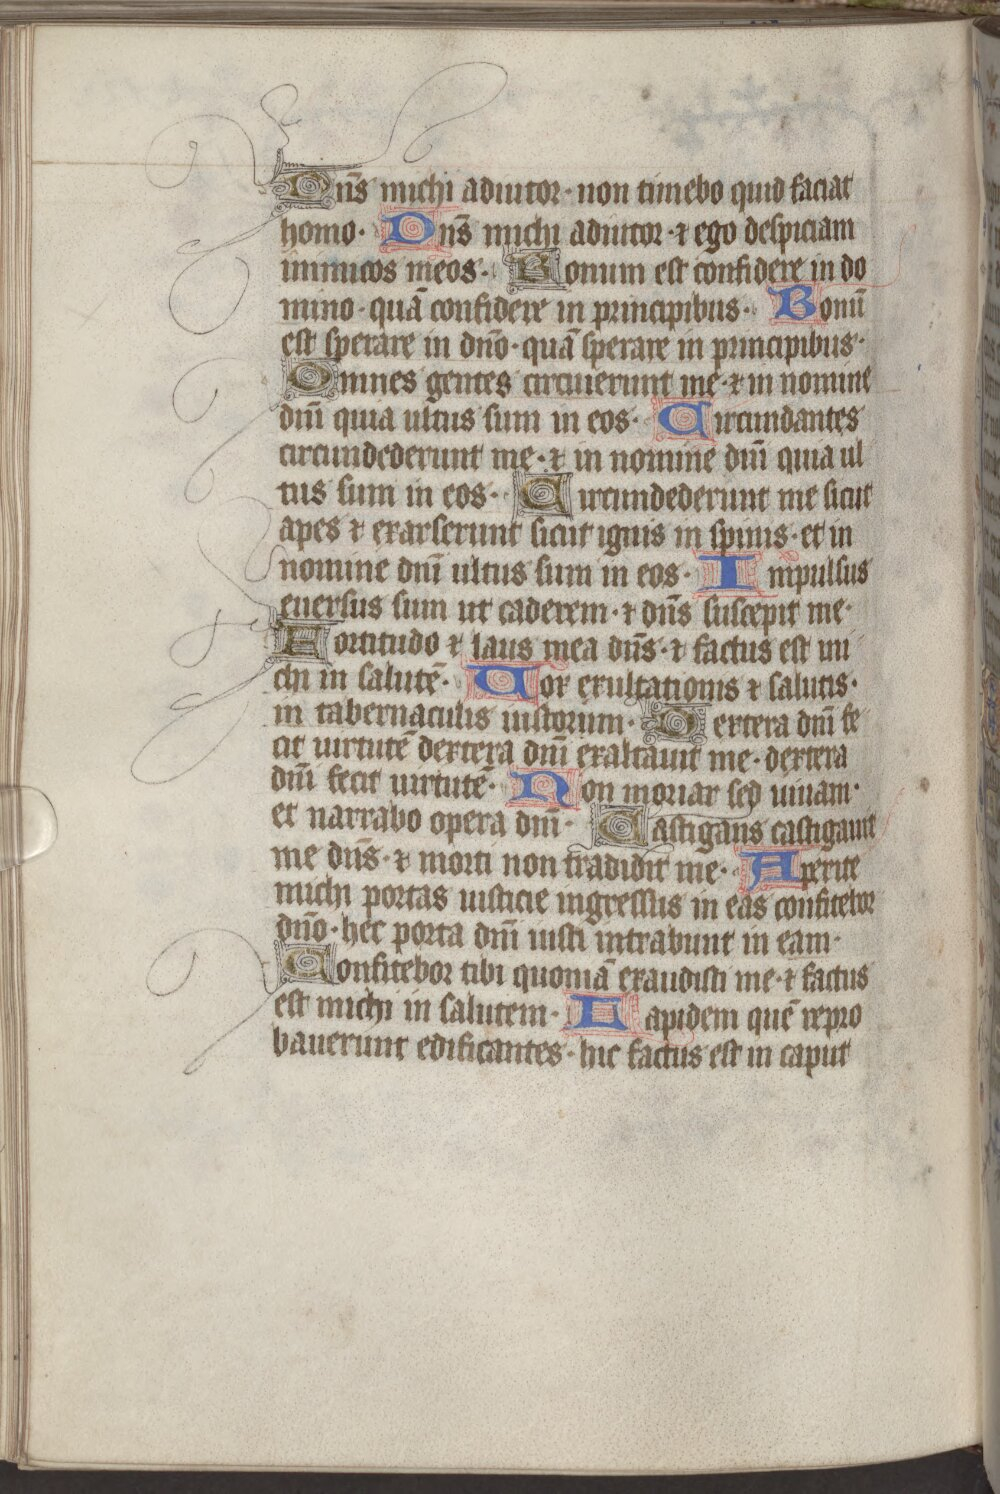 Dn̄s michi adiutor · non timebo quid faciat
homo · Dn̄s michi adiutor · ⁊ ego despiciam
inimicos meos · Bonum est confidere in do
mino · quā confidere in principibus · Bonū
est sperare in dn̄o · quā sperare in principibus ·
Omnes gentes circuierunt me · ⁊ in nomine
dn̄i quia ultus sum in eos · Circundantes
circundederunt me · ⁊ in nomine dn̄i quia ul
tus sum in eos · Circundederunt me sicut
apes ⁊ exarserunt sicut ignis in spinis · et in
nomine dn̄i ultus sum in eos · Impulsus
euersus sum ut caderem · ⁊ dn̄s suscepit me ·
Fortitudo ⁊ laus mea dn̄s · ⁊ factus est mi
chi in salutē · Uox exultationis ⁊ salutis ·
in tabernaculis iustorum · Dextera dn̄i fe
cit uirtutē dextera dn̄i exaltauit me · dextera
dn̄i fecit uirtutē · Non moriar sed uiuam ·
et narrabo opera dn̄i · Castigans castigauit
me dn̄s · ⁊ morti non tradidit me · Aperite
michi portas iusticie ingressus in eas confitebor
dn̄o · hec porta dn̄i iusti intrabunt in eam ·
Confitebor tibi quoniā exaudisti me · ⁊ factus
est michi in salutem · Lapidem quē repro
bauerunt edificantes · hic factus est in caput